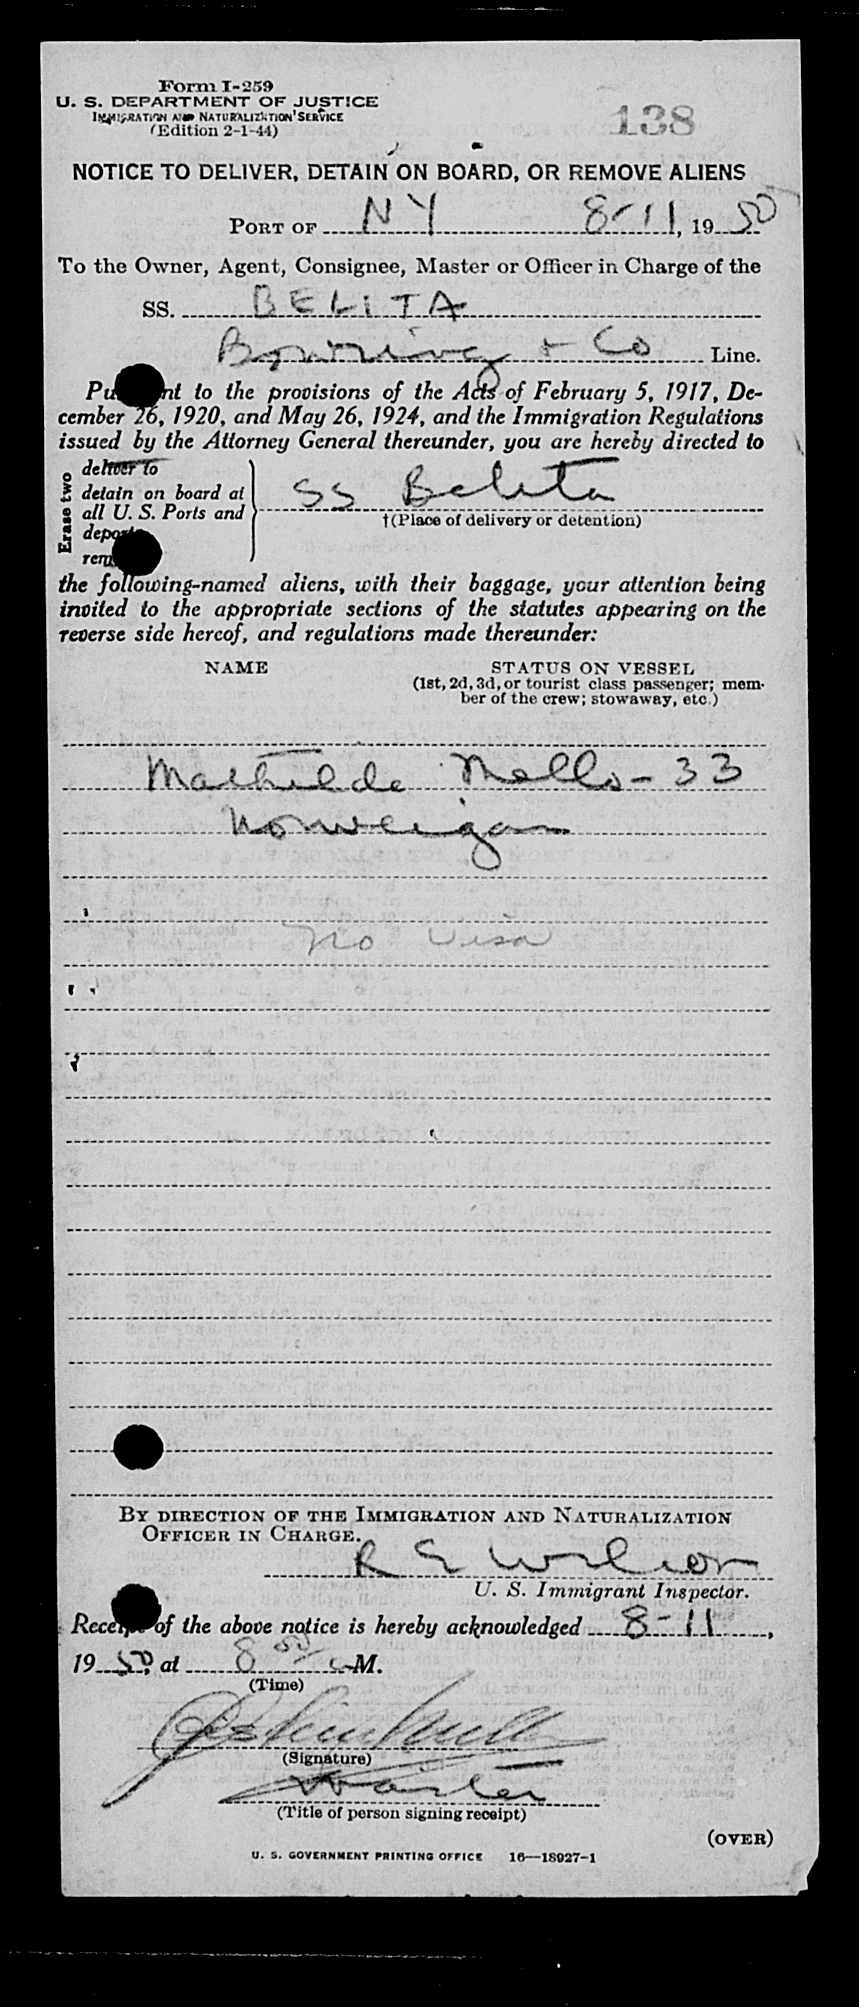 Form I-259
U. S. DEPARTMENT OF JUSTICE
IMMIGRATION AND NATURALIZATION SERVICE
(Edition 2-1-44)
138
NOTICE TO DELIVER, DETAIN ON BOARD, OR REMOVE ALIENS
PORT OF NY 8-11, 1950
To the Owner, Agent, Consignee, Master or Officer in Charge of the
SS. BELITA
Bowring & Co Line.
Pu nt to the provisions of the Acts of February 5, 1917, De-
cember 26, 1920, and May 26, 1924, and the Immigration Regulations
issued by the Attorney General thereunder, you are hereby directed to
Erase two
deliver to
detain on board at
all U. S. Ports and
depo
rem
SS Belita
†(Place of delivery or detention)
the following-named aliens, with their baggage, your attention being
invited to the appropriate sections of the statutes appearing on the
reverse side hereof, and regulations made thereunder:
NAME STATUS ON VESSEL
(1st, 2d, 3d, or tourist class passenger; mem-
ber of the crew; stowaway, etc.)
Mathilde - 33
Norweigan
No Visa
BY DIRECTION OF THE IMMIGRATION AND NATURALIZATION
OFFICER IN CHARGE.
R E
U. S. Immigrant Inspector.
Receipt of the above notice is hereby acknowledged 8-11,
1950, at 8 50 M.
(Time)
(Signature)
Master
(Title of person signing receipt)
(OVER)
U. S. GOVERNMENT PRINTING OFFICE 16—18927-1